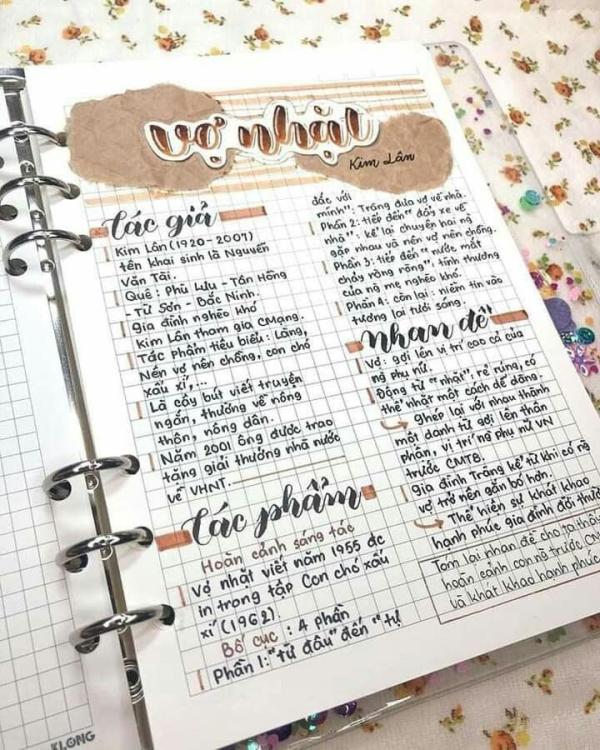 vợ nhặt
Kim Lân
Tác giả
Kim Lân (1920-2007)
tên khai sinh là Nguyễn
Văn Tài.
Quê: Phù Lưu - Tân Hồng
- Từ Sơn - Bắc Ninh.
gia đình nghèo khó
Kim Lân tham gia CMạng.
Tác phẩm tiêu biểu: Làng,
Nên vợ nên chồng, con chó
xấu xí,...
Là cây bút viết truyện
ngắn, thường về nông
thôn, nông dân.
Năm 2001 ông được trao
tặng giải thưởng nhà nước
về VHNT.
Tác phẩm
Hoàn cảnh sáng tác
Vợ nhặt viết năm 1955 đc
in trong tập Con chó xấu
xí (1962).
Bố cục: 4 phần
Phần 1: "từ đầu" đến "tự
đắc với
mình": Tràng đưa vợ về nhà.
Phần 2: tiếp đến "đẩy xe về
nhà". kể lại chuyện hai ng
gặp nhau và nên vợ nên chồng.
Phần 3: tiếp đến "nước mắt
chảy ròng ròng": tình thương
của ng mẹ nghèo khó.
Phần 4: còn lại: niềm tin vào
tương lai tươi sáng.
nhan đề
Vợ: gợi lên vị trí cao cả của
ng phụ nữ.
Động từ "nhặt": rẻ rúng, có
thể nhặt một cách dễ dàng.
Ghép lại với nhau thành
một danh từ gợi lên thân
phận, vị trí ng phụ nữ VN
trước CMT8.
gia đình Tràng kể từ khi có ng
vợ trở nên gắn bó hơn.
Thể hiện sự khát khao
hạnh phúc gia đình đời thườ
Tóm lại nhan đề cho ta thấy
hoàn cảnh con ng trước CM
và khát khao hạnh phúc
KLONG